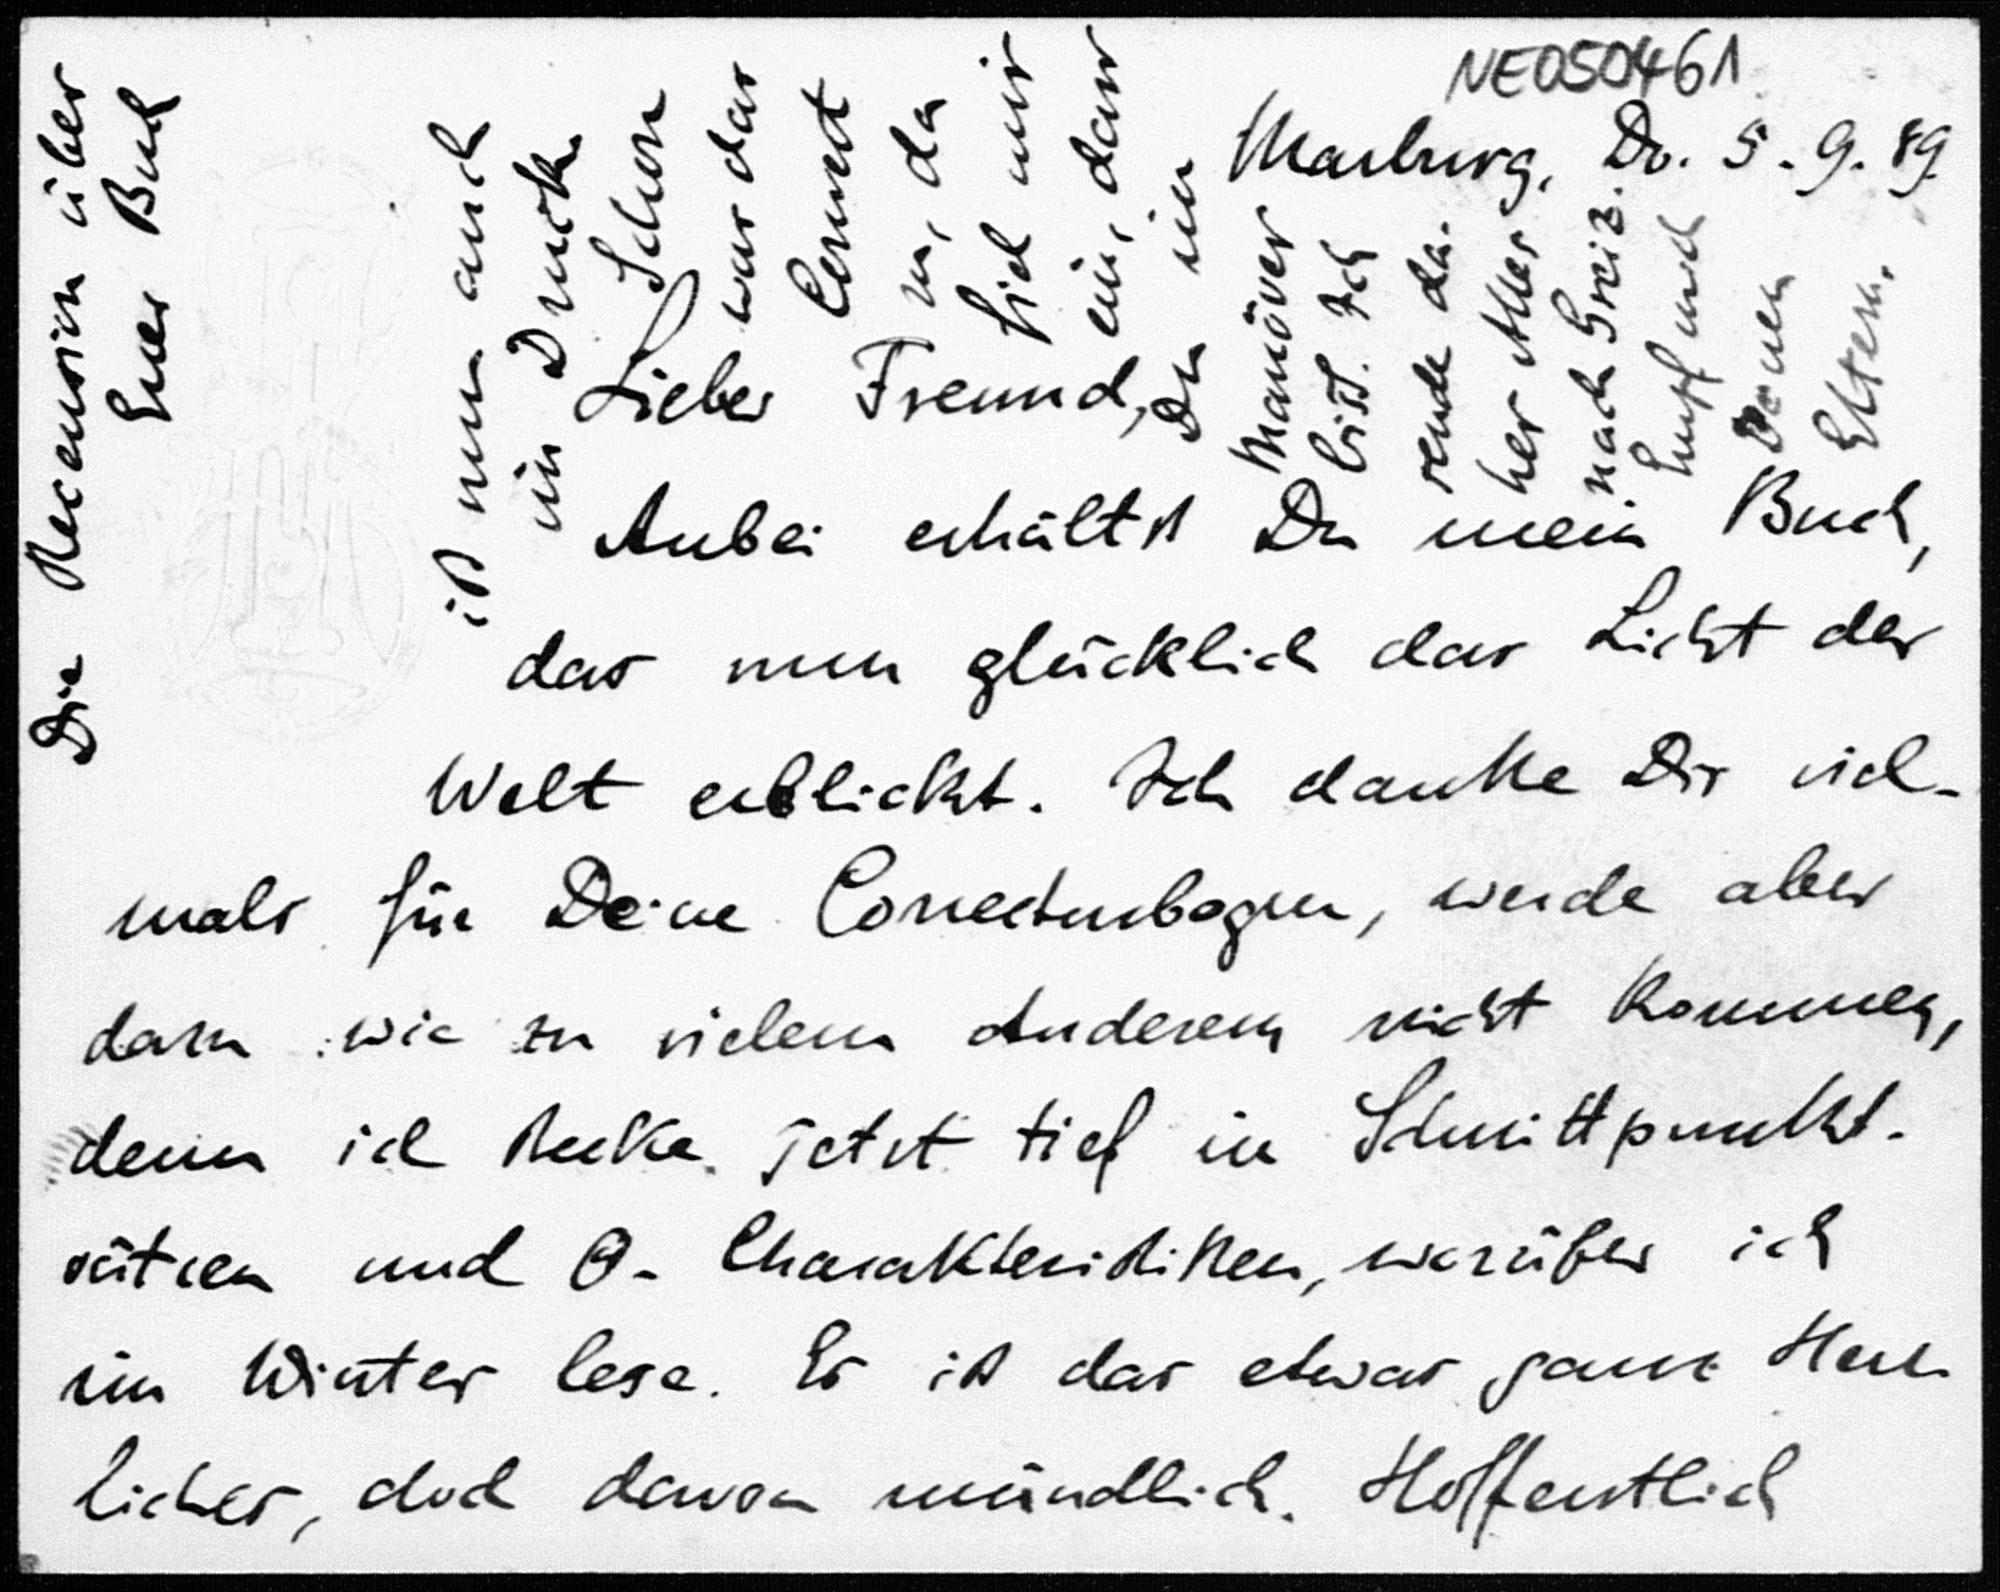 NE050461
Marburg, Do. 5.9.89.
Lieber Freund,
Anbei erhältst Du mein Buch,
das nun glücklich das Licht der
Welt erblickt. Ich danke Dir viel-
mals für Deine Correcturbogen, werde aber
dazu wie zu vielem Anderem nicht kommen,
denn ich stecke jetzt tief in Schnittpunkt-
sätzen und Θ-Charakteristiken, worüber ich
im Winter lese. Es ist das etwas ganz Herr-
liches, doch davon mündlich. Hoffentlich
Die Recension über
Euer Buch
ist nun auch
im Druck.
Schon
war das
Couvert
zu, da
fiel mir
ein, dass
Du im
Manöver
bist. Ich
sende da-
her Alles
nach Greiz.
und
Deinen
Eltern.